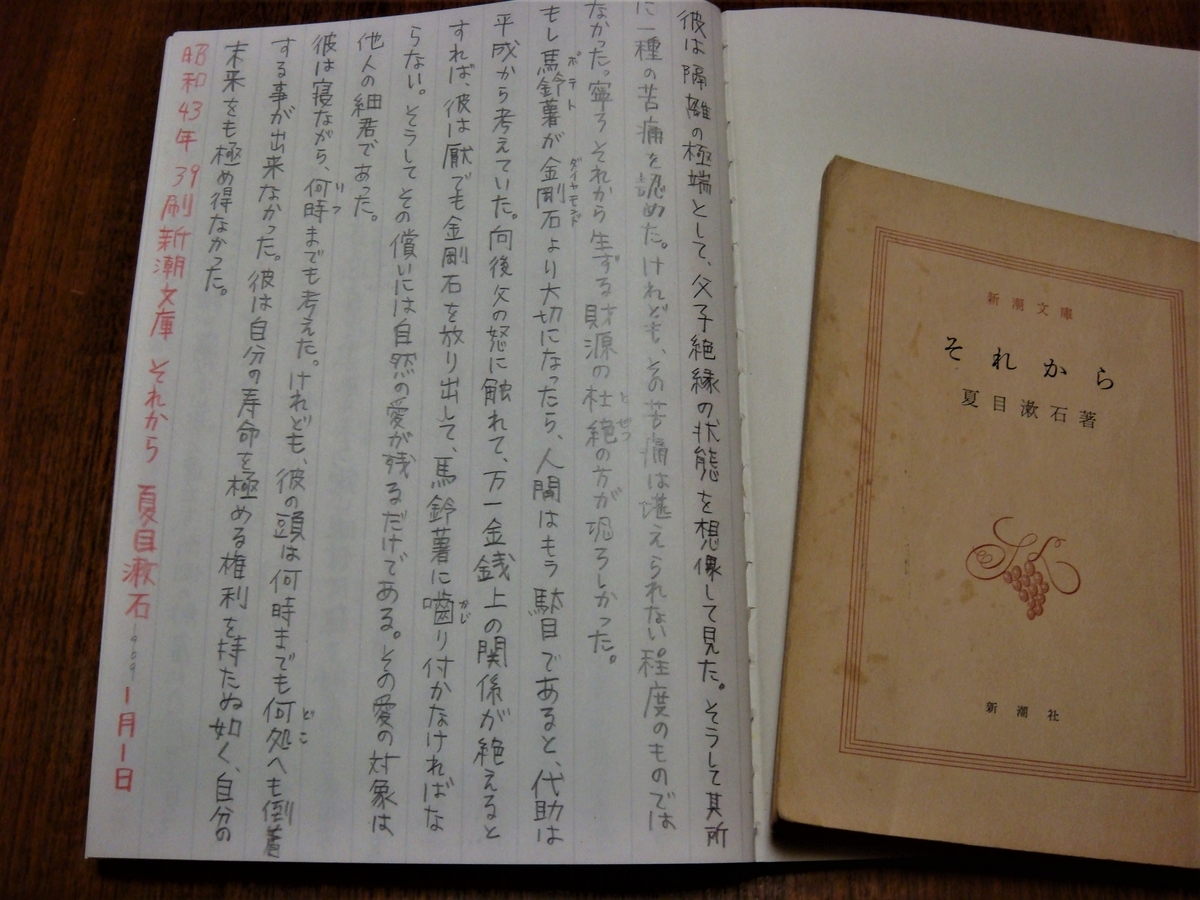 彼は隔離の極端として、父子絶縁の状態を想像して見た。そうして其所
に一種の苦痛を認めた。けれども、その苦痛は堪えられない程度のものでは
なかった。寧ろそれから生ずる財源の杜絶の方が恐ろしかった。
とぜつ
もし馬鈴薯が金剛石より大切になったら、人間はもう駄目であると、代助は
ポテト
ダイヤモンド
平成から考えていた。向後父の怒に触れて、万一金銭上の関係が絶えると
すれば、彼は厭でも金剛石を放り出して、馬鈴薯に噛り付かなければな
かじ
らない。そうしてその償いには自然の愛が残るだけである。その愛の対象は
他人の細君であった。
彼は寝ながら、何時までも考えた。けれども、彼の頭は何時までも何処へも到着
いつ
どこ
する事が出来なかった。彼は自分の寿命を極める権利を持たぬ如く、自分の
未来をも極め得なかった。
昭和43年 39刷 新潮文庫 それから 夏目漱石 1909 1月1日
新潮文庫
それから
夏目漱石著
新潮社